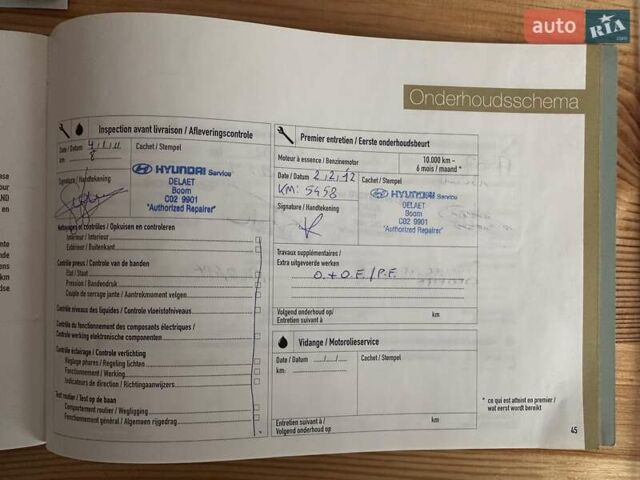 auto RIA .com
Onderhoudsschema
Inspection avant livraison / Afleveringscontrole
Date / Datum
km
8
Cachet / Stempel
Signature / Handtekening
HYUNDAI Service
DELAET
Boom
C02 9901
"Authorized Repairer"
Nettoyages et contrôles / Opkuisen en controleren
Intérieur / Interieur
Extérieur / Buitenkant
Contrôle pneus / Controle van de banden
Etat / Staat
Pression / Bandendruk
Couple de serrage jante / Aantrekmoment velgen
Contrôle niveaux des liquides / Controle vloeistofniveaus
Contrôle du fonctionnement des composants électriques /
Controle werking elektronische componenten
Contrôle éclairage / Controle verlichting
Réglage phares / Regeling lichten
Fonctionnement / Werking
Indicateurs de direction / Richtingaanwijzers
Test routier / Test op de baan
Comportement routier / Wegligging
Fonctionnement général / Algemeen rijgedrag
Premier entretien / Eerste onderhoudsbeurt
Moteur à essence / Benzinemotor
10.000 km -
6 mois / maand *
Date / Datum 2/2/12
KM: 5458
Cachet / Stempel
Signature / Handtekening
HYUNDAI Service
DELAET
Boom
C02 9901
"Authorized Repairer"
Travaux supplémentaires /
Extra uitgevoerde werken
O.+O.F./P.F.
Volgend onderhoud op/
Entretien suivant à
km
Vidange / Motorolieservice
Date / Datum __/__/__
km:
Cachet / Stempel
Entretien suivant à /
Volgend onderhoud op
km
* ce qui est atteint en premier /
wat eerst wordt bereikt
45